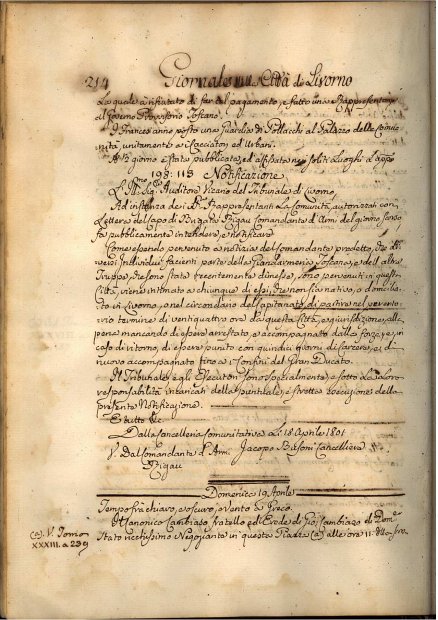 214 Giornale della Città di Livorno
La quale à rifiutato di far tal pagamento, e fatto una Rappresentanza
al Governo Provvisorio Toscano.
I Francesi anno posto una Guardia di Pollacchi al Palazzo della Comu
nità, unitamente a i Cacciatori ed Urbani.
A dì giorno è stata pubblicata, ed affissata ne soliti Luoghi L'appo
198: 118 Notificazione
L' Ill. Sig. Auditore Vicario del Tribunale di Livorno
Ad instanza de i Rappresentanti La Comunità, autorizzati con
Lettera del Capo di Brigata Rigau Comandante d'Armi del giorno
fa pubblicamente intendere, e Notificare
Come essendo pervenuto a notizia del Comandante predetto, che di
versi Individui facienti parte della Giandarmeria Toscana, e dell'altra
Truppa, che sono state recentemente dimesse, sono pervenuti in questa
Città, viene intimato a chiunque di essi, che non sia nativo, o domicilia
to in Livorno, o nel circondario del Capitanato, di partire nel peren
torio termine di ventiquattro ore da questa Città, e giurisdizione, alla
pena mancando di essere arrestato, e accompagnato dalla forza, e in
caso di ritorno, di essere punito con quindici giorni di Carcere, e di
nuovo accompagnato fino a i Confini del Gran Ducato.
Il Tribunale, e gli Esecutori sono specialmente, e sotto La Loro
responsabilità incaricati della puntuale, e stretta esecuzione della
presente Notificazione.
E tutto &c.
Dalla Cancelleria Comunitativa Li 18 Aprile 1801
V. Dal Comandante d'Armi Jacopo Cancelliere
Rigau
Domenica 19 Aprile
Tempo frà chiaro, e oscuro, e Vento a Greco.
Il Canonico Cambiaso fratello ed Erede di Gio: Cambiaso di
Stato ricchissimo Negoziante in questa Piazza (a) alle ore 11
(a) V. Tomo
XXXIII. a 239